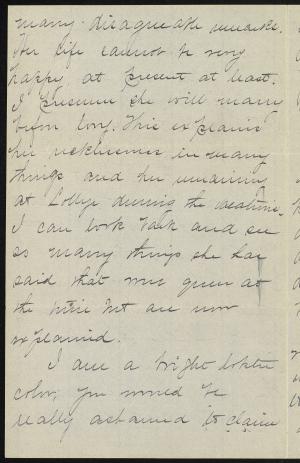 many disagreeable remarks.
Her life cannot be very
happy at present at least.
I presume she will marry
before long. This explains
her recklessness in many
things and her remaining
at Lollys during the vacation.
I can look back and see
so many things she has
said that was queer at
the time but are now
explained.
I am a bright lobster
color, you would be
really ashamed to claim